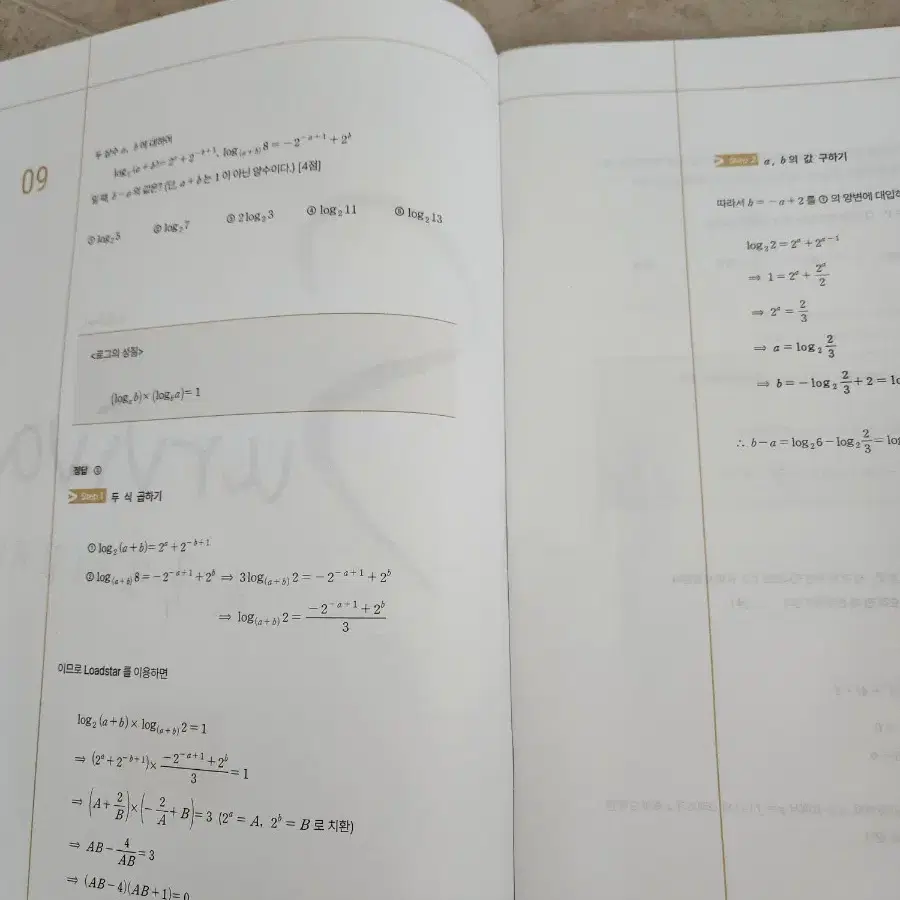 09
두 실수 a, b에 대하여
log₂(a+b)=2^a+2^(-b+1), log_(a+b) 8=-2^(-a+1)+2^b
일 때, b-a의 값은? (단, a+b는 1이 아닌 양수이다.) [4점]
① log₂5 ② log₂7 ③ 2log₂3 ④ log₂11 ⑤ log₂13
<로그의 성질>
(log_a b)×(log_b a)=1
정답 ③
Step 1 두 식 곱하기
① log₂(a+b)=2^a+2^(-b+1)
② log_(a+b) 8=-2^(-a+1)+2^b ⇒ 3log_(a+b) 2=-2^(-a+1)+2^b
⇒ log_(a+b) 2=(-2^(-a+1)+2^b)/3
이므로 Loadstar를 이용하면
log₂(a+b)×log_(a+b) 2=1
⇒ (2^a+2^(-b+1))×(-2^(-a+1)+2^b)/3=1
⇒ (A+2/B)×(-2/A+B)=3 (2^a=A, 2^b=B로 치환)
⇒ AB-4/AB=3
⇒ (AB-4)(AB+1)=0
Step 2 a, b의 값 구하기
따라서 b=-a+2를 ①의 양변에 대입하
log₂2=2^a+2^(a-1)
⇒ 1=2^a+2^a/2
⇒ 2^a=2/3
⇒ a=log₂ 2/3
⇒ b=-log₂ 2/3+2=lo
∴ b-a=log₂6-log₂ 2/3=log